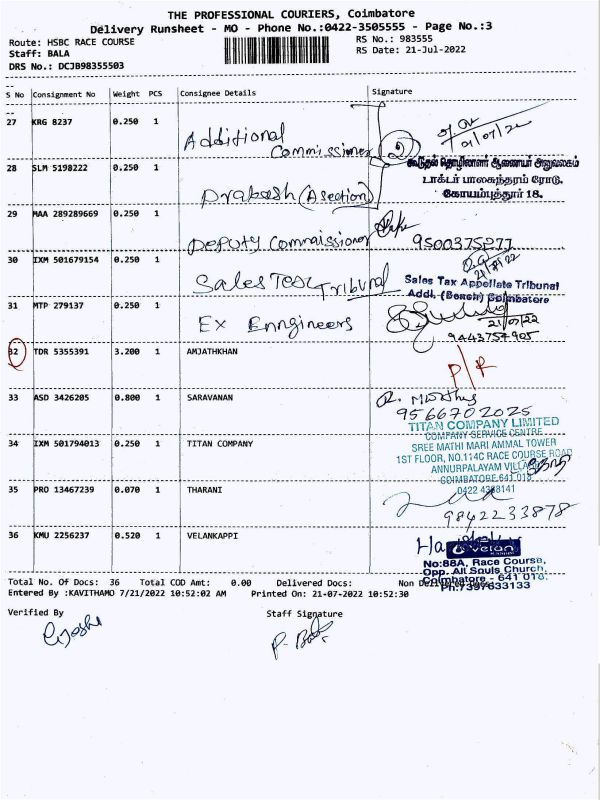 THE PROFESSIONAL COURIERS, Coimbatore
Delivery Runsheet - MO - Phone No.:0422-3505555 - Page No.:3
Route: HSBC RACE COURSE
RS No.: 983555
Staff: BALA
RS Date: 21-Jul-2022
DRS No.: DCJB98355503
S No Consignment No Weight PCS Consignee Details Signature
27 KRG 8237 0.250 1 Additional Commissioner
21/07/22
28 SLM 5198222 0.250 1 Prabash (A section)
கூடுதல் தொழிலாளர் ஆணையர் அலுவலகம்
டாக்டர் பாலசுந்தரம் ரோடு,
கோயம்புத்தூர் 18.
29 MAA 289289669 0.250 1 Deputy Commissioner
9500375277
30 IXM 501679154 0.250 1 Sales Tax Tribunal
21/7/22
Sales Tax Appellate Tribunal
Addl. (Bench) Coimbatore
31 MTP 279137 0.250 1 Ex Enngineers
21/07/22
9443757905
32 TDR 5355391 3.200 1 AMJATHKHAN
P/R
33 ASD 3426205 0.800 1 SARAVANAN
9566702025
34 IXM 501794013 0.250 1 TITAN COMPANY
TITAN COMPANY LIMITED
COMPANY SERVICE CENTRE
SREE MATHI MARI AMMAL TOWER
1ST FLOOR, NO.114C RACE COURSE ROAD
ANNURPALAYAM
COIMBATORE 641 018
35 PRO 13467239 0.070 1 THARANI
9842233878
36 KMU 2256237 0.520 1 VELANKAPPI
velan
No:88A, Race Course,
Opp. All Souls Church,
Coimbatore - 641 018.
Ph:7397633133
Total No. Of Docs: 36 Total COD Amt: 0.00 Delivered Docs: Non
Entered By :KAVITHAMO 7/21/2022 10:52:02 AM Printed On: 21-07-2022 10:52:30
Verified By Staff Signature